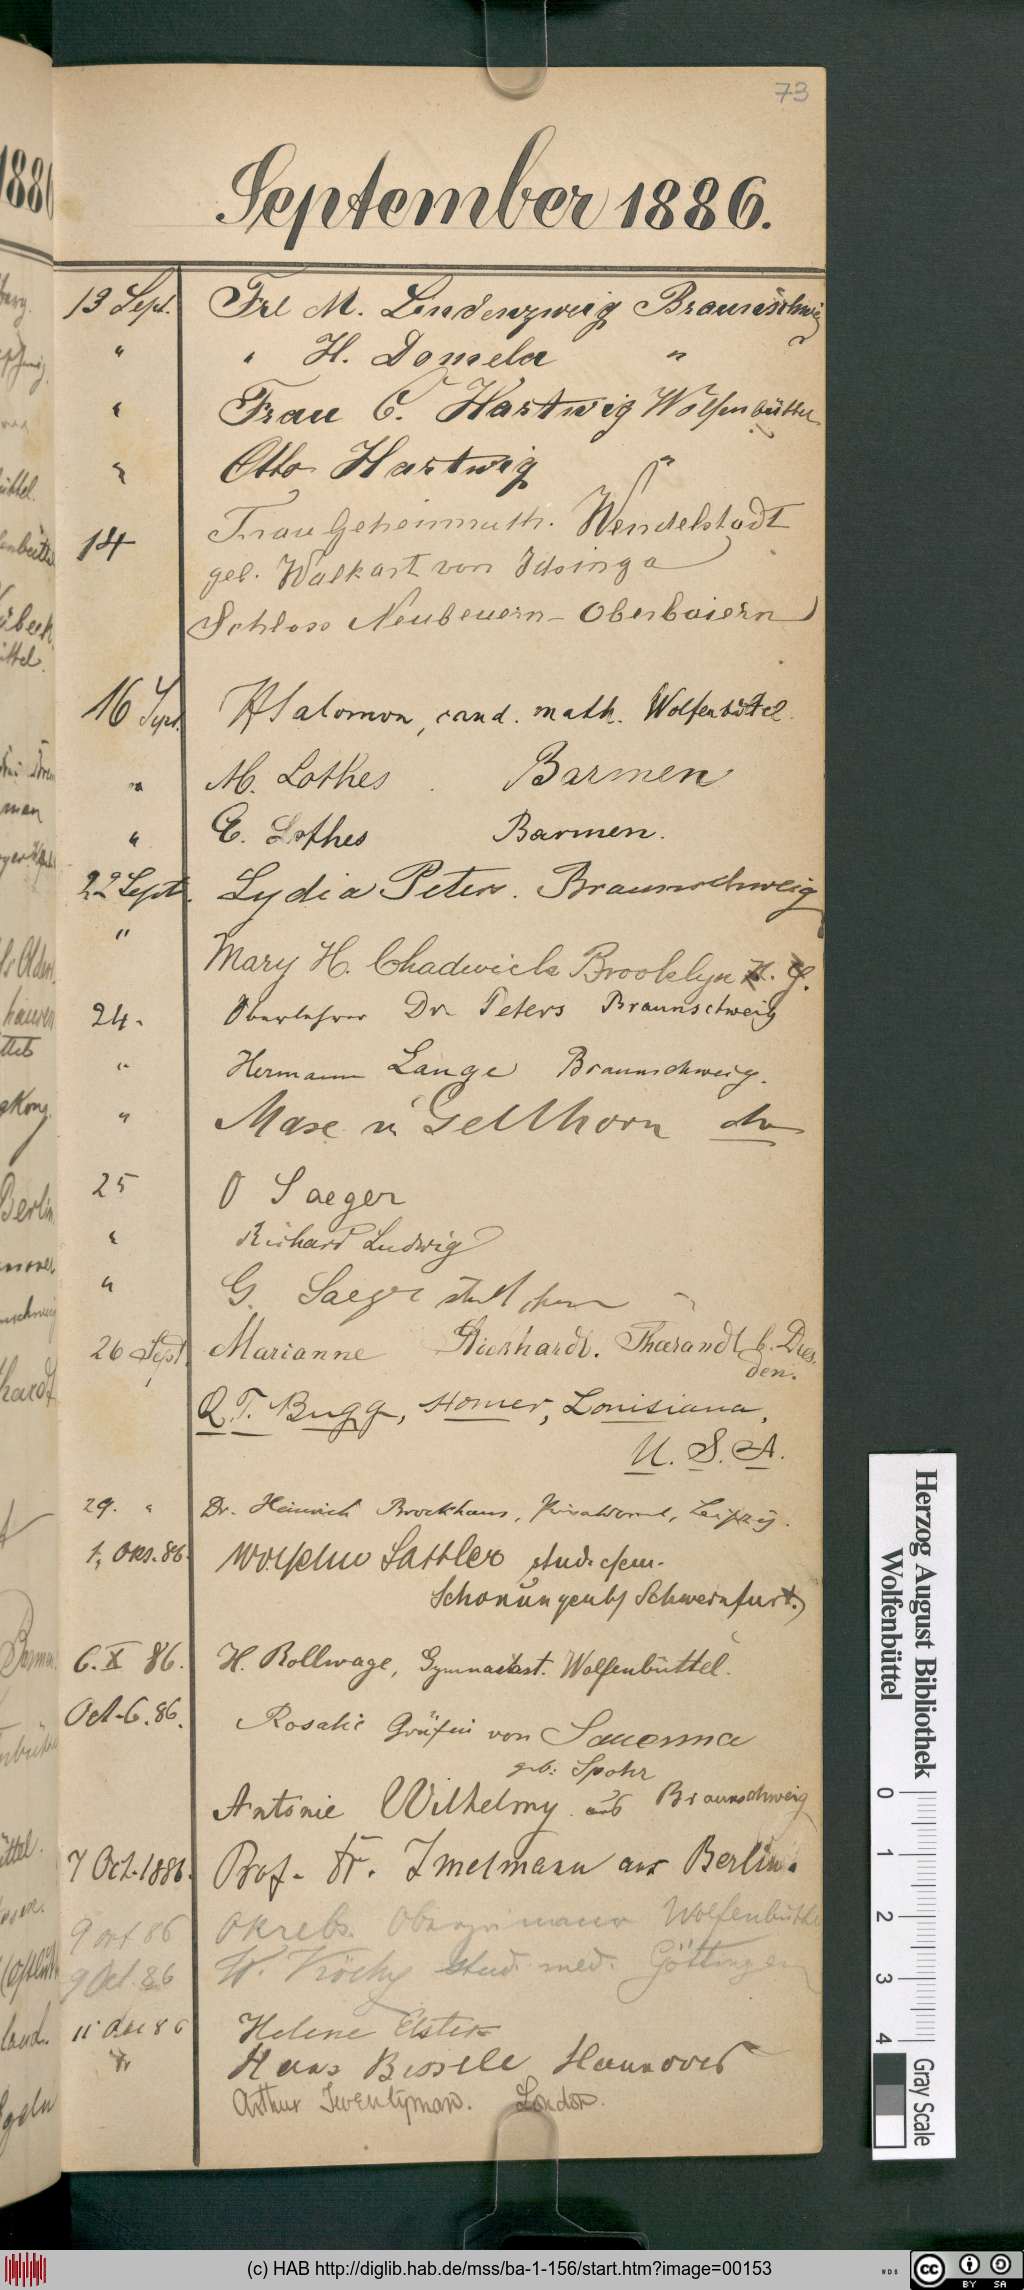 73
September 1886.
13 Sept. Frl M. Lindenzweig Braunschweig
" " H. Domela "
" Frau C. Hartwig Wolfenbüttel
" Otto Hartwig "
14 Frau Geheimrath. Wendelstadt
geb. Walkart von Idsinga
Schloss Neubeuern - Oberbaiern
16 Sept. Salomon, cand. math. Wolfenbüttel.
" M. Lothes Barmen
" E. Lothes Barmen.
22 Sept. Lydia Peters. Braunschweig
" Mary H. Chadwick Brooklyn N. Y.
24. Oberlehrer Dr Peters Braunschweig
" Hermann Lange Braunschweig.
" Max v. Gellhorn do
25 O Saeger
" Richard Ludwig
" G. Saeger
26 Sept. Marianne Tharandt b. Dres
den.
Q. T. Bugg, Homer, Louisiana,
U. S. A.
29. " Dr. Heinrich Brockhaus, Leipzig.
1. Okt. 86. Sattler stud. chem.
Schonungen b/ Schweinfurt.
6. X 86. H. Rollwage, Gymnasiast. Wolfenbüttel.
Oct. 6. 86. Rosalie Gräfin von Sauerma
geb: Spohr
Antonie Wilhelmy aus Braunschweig
7 Oct. 1886. Prof. Dr. Imelmann aus Berlin.
9 oct 86 O Krebs. Obersprimaner Wolfenbüttel
9 Oct. 86 W. stud. med. Göttingen
11 Oct 86 Helene Elster
" Hans Hannover
Arthur Twentyman. London.
Herzog August Bibliothek
Wolfenbüttel
0 1 2 3 4
Gray Scale
(c) HAB http://diglib.hab.de/mss/ba-1-156/start.htm?image=00153
cc BY SA